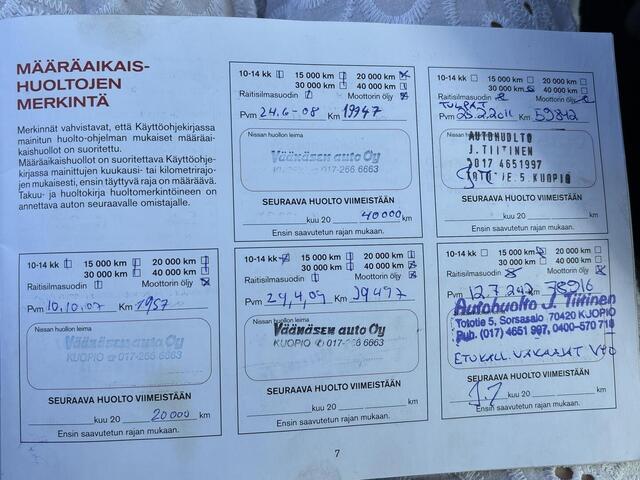 MÄÄRÄAIKAIS-
HUOLTOJEN
MERKINTÄ
Merkinnät vahvistavat, että Käyttöohjekirjassa
mainitun huolto-ohjelman mukaiset määräai-
kaishuollot on suoritettu.
Määräaikaishuollot on suoritettava Käyttöohje-
kirjassa mainittujen kuukausi- tai kilometrirajo-
jen mukaisesti, ensin täyttyvä raja on määräävä.
Takuu- ja huoltokirja huoltomerkintöineen on
annettava auton seuraavalle omistajalle.
10-14 kk 15 000 km 20 000 km
30 000 km 40 000 km
Raitisilmasuodin Moottorin öljy
Pvm 24.6-08 Km 19947
Nissan huollon leima
Väänäsen auto Oy
KUOPIO 017-266 6663
SEURAAVA HUOLTO VIIMEISTÄÄN
kuu 20 40000 km
Ensin saavutetun rajan mukaan.
10-14 kk 15 000 km 20 000 km
30 000 km 40 000 km
Raitisilmasuodin Moottorin öljy
Pvm 25.2.2011 Km 59812
Nissan huollon leima
AUTOHUOLTO
J.TIITINEN
017 4651997
TOTOTIE.5 KUOPIO
SEURAAVA HUOLTO VIIMEISTÄÄN
kuu 20 km
Ensin saavutetun rajan mukaan.
10-14 kk 15 000 km 20 000 km
30 000 km 40 000 km
Raitisilmasuodin Moottorin öljy
Pvm 10.10.07 Km 1957
Nissan huollon leima
Väänäsen auto Oy
KUOPIO 017-266 6663
SEURAAVA HUOLTO VIIMEISTÄÄN
kuu 20 20000 km
Ensin saavutetun rajan mukaan.
10-14 kk 15 000 km 20 000 km
30 000 km 40 000 km
Raitisilmasuodin Moottorin öljy
Pvm 24,4,09 Km 39497
Nissan huollon leima
Väänäsen auto Oy
KUOPIO 017-266 6663
SEURAAVA HUOLTO VIIMEISTÄÄN
kuu 20 km
Ensin saavutetun rajan mukaan.
10-14 kk 15 000 km 20 000 km
30 000 km 40 000 km
Raitisilmasuodin Moottorin öljy
Pvm 12.7.242 Km 78916
Autohuolto J. Tiitinen
Tototie 5, Sorsasalo 70420 KUOPIO
Puh. (017) 4651 997, 0400-570 718
SEURAAVA HUOLTO VIIMEISTÄÄN
kuu 20 km
Ensin saavutetun rajan mukaan.
7